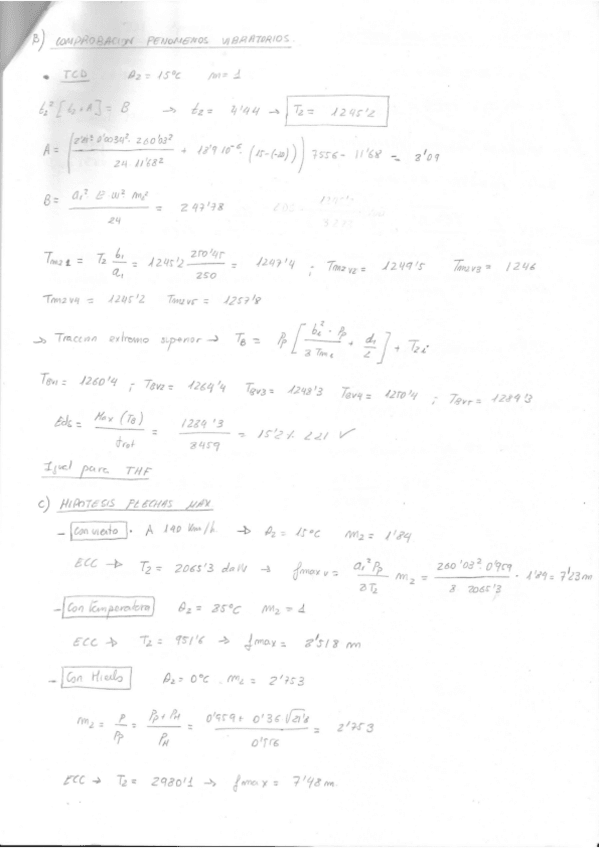 B) COMPROBACION FENOMENOS VIBRATORIOS.
• TCD θ2 = 15ºC m = 1
t2² [t2 + A] = B → t2 = 4'44 → T2 = 1245'2
24 · 11'68² 7556 - 11'68 = 3'09
B = a1² · E · w1² · m2² / 24 = 297'78
Tm2v1 = T2 b1/a1 = 1245'2 250'45/250 = 1247'4 ; Tm2v2 = 1249'5 Tm2v3 = 1246
Tm2v4 = 1245'2 Tm2v5 = 1257'8
→ Traccion extremo superior → TB = Pp [ bi² · Pp / 8 Tmi + di/2 ] + T2i
TBV1 = 1260'4 ; TBV2 = 1269'4 TBV3 = 1248'3 TBV4 = 1250'4 ; TBV5 = 1289'3
Eds = Max (TB) / Trot = 1289'3 / 8459 = 15'2% < 21 ✓
Igual para THF
C) HIPOTESIS FLECHAS MAX
- Con viento · A 140 Km/h → θ2 = 15ºC m2 = 1'84
ECC → T2 = 2065'3 daN → fmax v = a1² Pp / 8 T2 m2 = 260'03² · 0'959 / 8 · 2065'3 · 1'89 = 7'23 m
- Con Temperatura θ2 = 85ºC m2 = 1
ECC → T2 = 951'6 → fmax = 8'518 m
- Con Hielo θ2 = 0ºC m2 = 2'753
m2 = P / Pp = Pp + PH / PH = 0'959 + 0'36 √21'8 / 0'956 = 2'753
ECC → T2 = 2980'1 → fmax = 7'48 m.